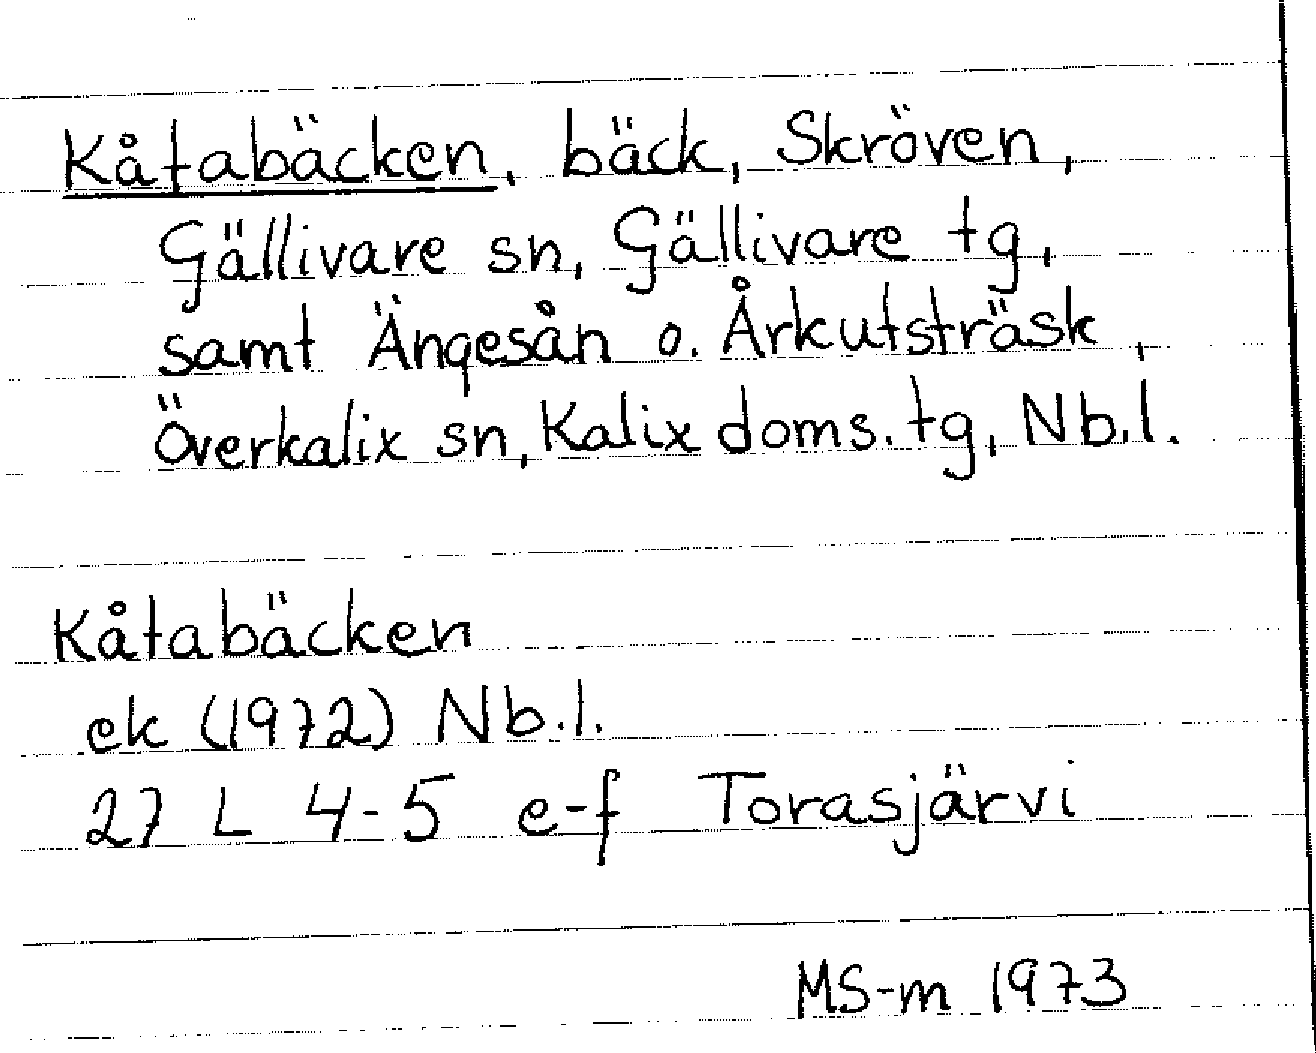 Kåtabäcken, bäck, Skröven,
Gällivare sn, Gällivare tg,
samt Ängesån o. Årkutsträsk,
Överkalix sn, Kalix doms. tg, Nb.l.
Kåtabäcken
ek (1972) Nb.l.
27 L 4-5 e-f Torasjärvi
MS-m 1973